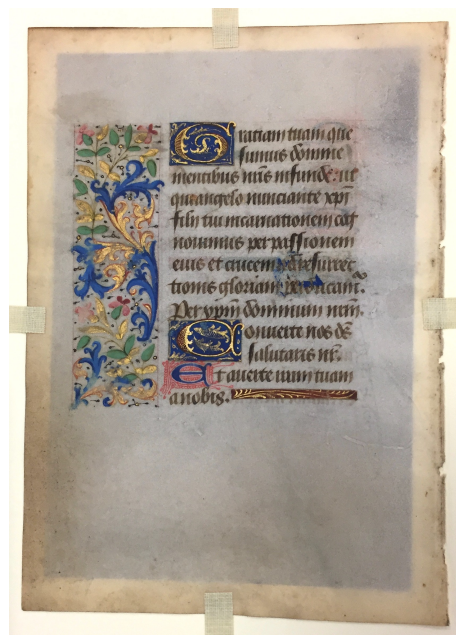 Gratiam tuam que
sumus domine
mentibus nr̄is infunde ut
qui angelo nunciante xp̄i
filij tui incarnationem cog
novimus per passionem
eius et crucem ad resurrec
tionis gloriam perducam᷒
Per xp̄m dominum nr̄m.
Converte nos dē
salutaris nr̄.
Et averte iram tuam
a nobis.